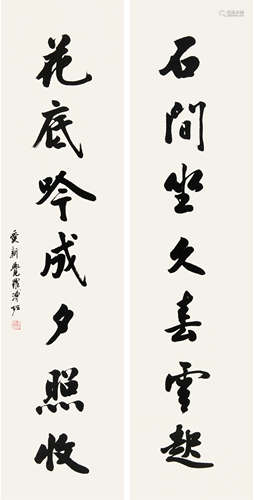 石間坐久春雲起
花底吟成夕照收
愛新覺羅溥佐